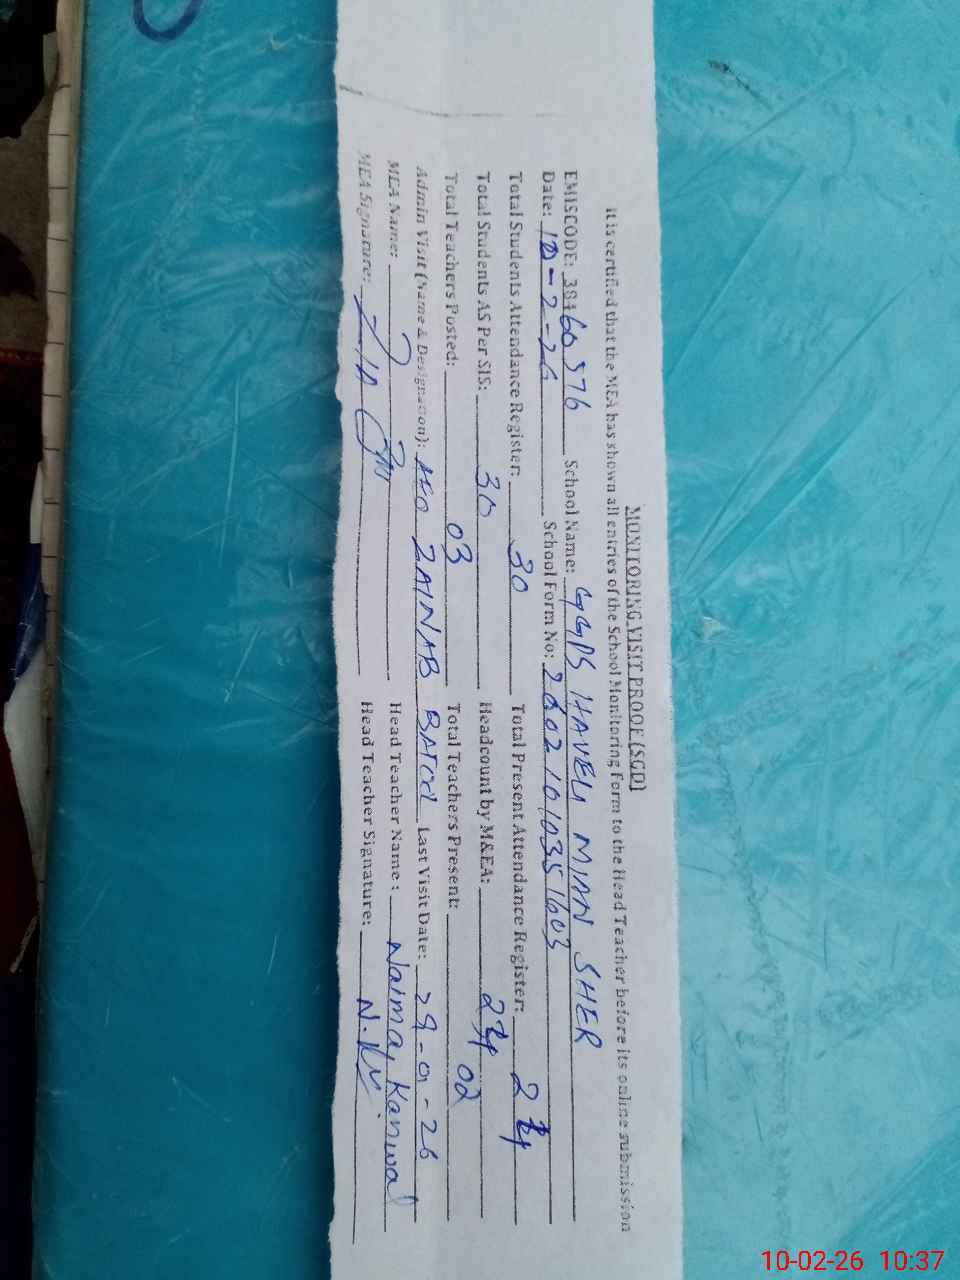 MONITORING VISIT PROOF (SGD)
It is certified that the MEA has shown all entries of the School Monitoring Form to the Head Teacher before its online submission
EMISCODE: 38460576 School Name: GGPS HAVELI MIAN SHER
Date: 10-2-26 School Form No: 26021010351603
Total Students Attendance Register: 30 Total Present Attendance Register: 24
Total Students AS Per SIS: 30 Headcount by M&EA: 24
Total Teachers Posted: 03 Total Teachers Present: 02
Admin Visit (Name & Designation): AEO ZAINAB BATOOL Last Visit Date: 29-01-26
MEA Name: Head Teacher Name: Naima Kanwal
MEA Signature: Head Teacher Signature: N.K
10-02-26 10:37